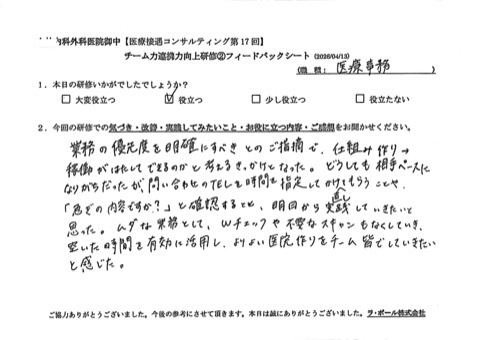 内科外科医院御中【医療接遇コンサルティング第17回】
チーム力連携力向上研修②フィードバックシート (2026/04/13)
(職種: 医療事務 )
1．本日の研修いかがでしたでしょうか?
□ 大変役立つ ☑ 役立つ □ 少し役立つ □ 役立たない
2．今回の研修での気づき・改善・実践してみたいこと・お役に立つ内容・ご感想をお聞かせください。
業務の優先度を明確にすべきとのご指摘で、仕組み作り→
稼働がはたしてできるのかと考えるきっかけとなった。どうしても相手ペースに
なりがちだったが問い合わせのTELを時間を指定してかけ直してもらうことや、
「急ぎの内容ですか?」と確認することを、明日から実践していきたいと
思った。ムダな業務として、Wチェックや不要なスキャンもなくしていき、
空いた時間を有効に活用し、よりよい医院作りをチーム皆でしていきたい
と感じた。
ご協力ありがとうございました。今後の参考にさせて頂きます。本日は誠にありがとうございました。ラ・ポール株式会社